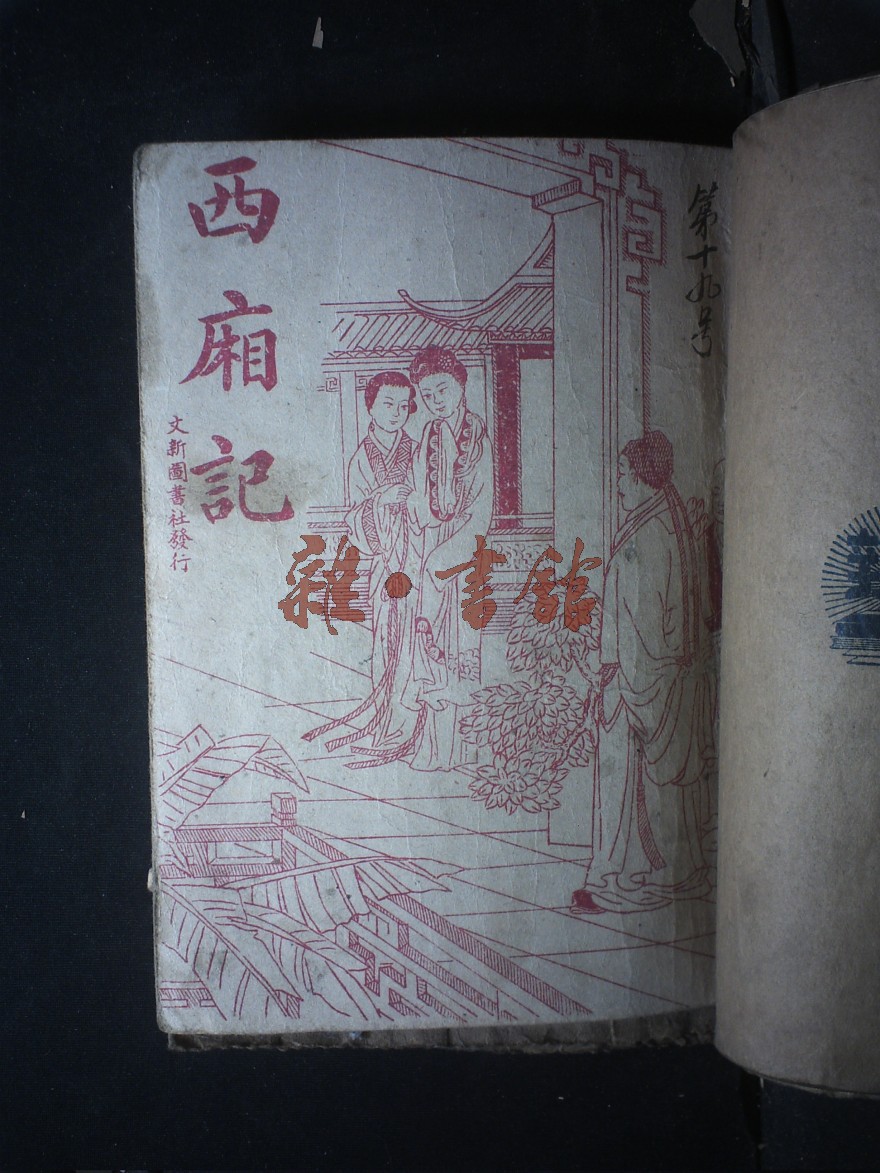 西廂記
文新圖書社發行
第十九号
雜·書館